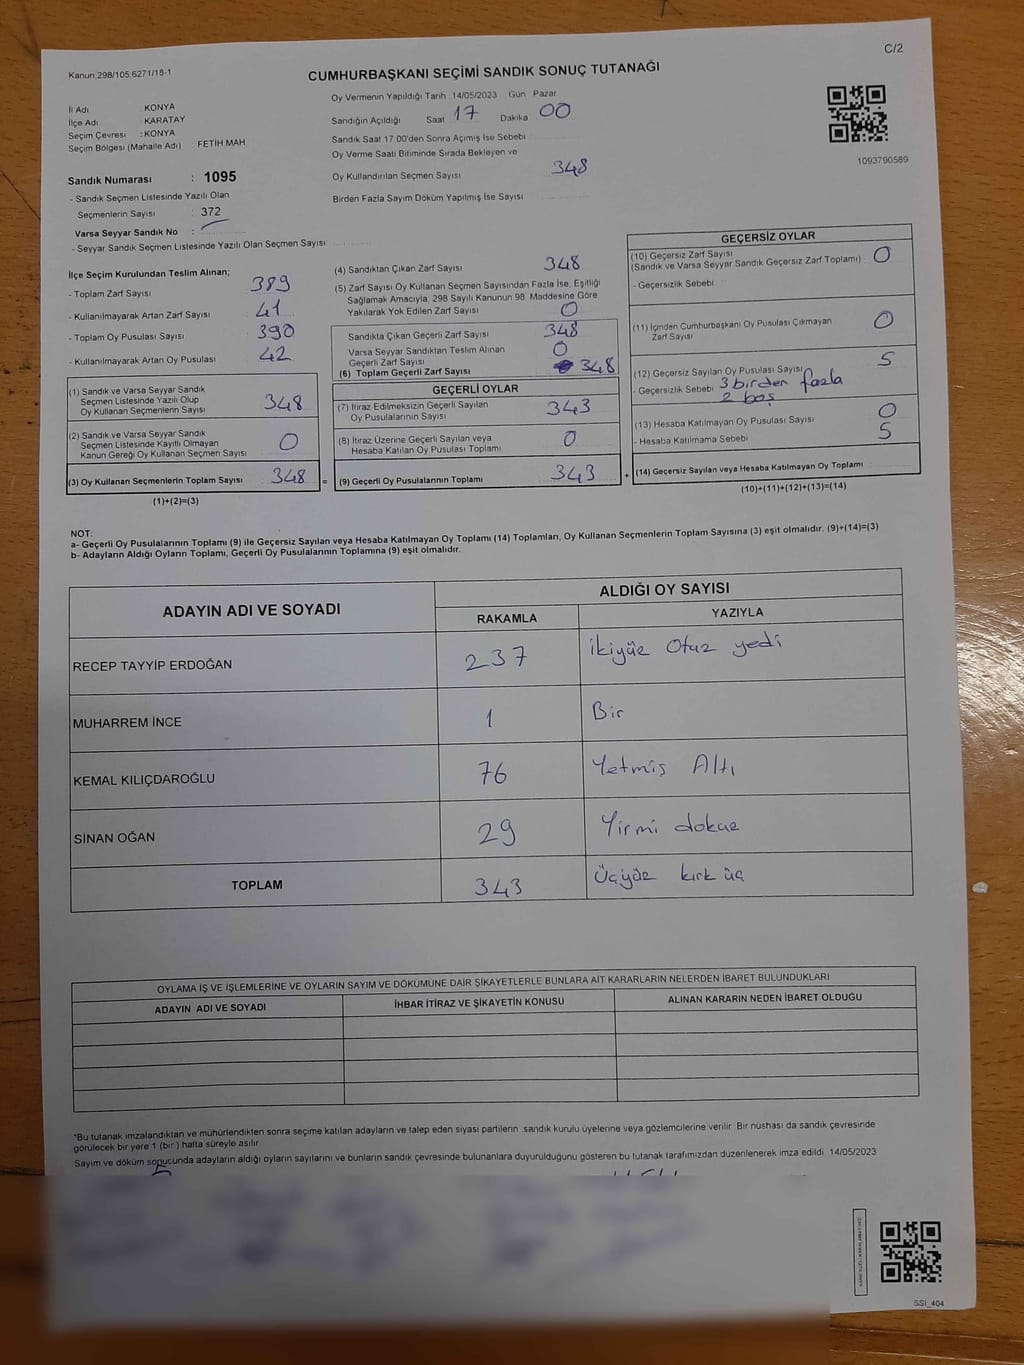 C/2
Kanun,298/105;6271/18-1
CUMHURBAŞKANI SEÇİMİ SANDIK SONUÇ TUTANAĞI
İl Adı KONYA
İlçe Adı KARATAY
Seçim Çevresi : KONYA
Seçim Bölgesi (Mahalle Adı) FETİH MAH.
Oy Vermenin Yapıldığı Tarih 14/05/2023 Gün Pazar
Sandığın Açıldığı Saat 17 Dakika 00
Sandık Saat 17:00'den Sonra Açılmış İse Sebebi
Oy Verme Saati Bitiminde Sırada Bekleyen ve
Oy Kullandırılan Seçmen Sayısı 348
Birden Fazla Sayım Döküm Yapılmış İse Sayısı
1093790589
Sandık Numarası : 1095
- Sandık Seçmen Listesinde Yazılı Olan
Seçmenlerin Sayısı : 372
Varsa Seyyar Sandık No :
- Seyyar Sandık Seçmen Listesinde Yazılı Olan Seçmen Sayısı
İlçe Seçim Kurulundan Teslim Alınan;
- Toplam Zarf Sayısı 389
- Kullanılmayarak Artan Zarf Sayısı 41
- Toplam Oy Pusulası Sayısı 390
- Kullanılmayarak Artan Oy Pusulası 42
(1) Sandık ve Varsa Seyyar Sandık
Seçmen Listesinde Yazılı Olup
Oy Kullanan Seçmenlerin Sayısı 348
(2) Sandık ve Varsa Seyyar Sandık
Seçmen Listesinde Kayıtlı Olmayan
Kanun Gereği Oy Kullanan Seçmen Sayısı 0
(3) Oy Kullanan Seçmenlerin Toplam Sayısı 348 =
(1)+(2)=(3)
(4) Sandıktan Çıkan Zarf Sayısı 348
(5) Zarf Sayısı Oy Kullanan Seçmen Sayısından Fazla İse, Eşitliği
Sağlamak Amacıyla, 298 Sayılı Kanunun 98. Maddesine Göre
Yakılarak Yok Edilen Zarf Sayısı 0
Sandıkta Çıkan Geçerli Zarf Sayısı 348
Varsa Seyyar Sandıktan Teslim Alınan
Geçerli Zarf Sayısı 0
(6) Toplam Geçerli Zarf Sayısı 348
GEÇERLİ OYLAR
(7) İtiraz Edilmeksizin Geçerli Sayılan
Oy Pusulalarının Sayısı 343
(8) İtiraz Üzerine Geçerli Sayılan veya
Hesaba Katılan Oy Pusulası Toplamı 0
(9) Geçerli Oy Pusulalarının Toplamı 343 +
GEÇERSİZ OYLAR
(10) Geçersiz Zarf Sayısı
(Sandık ve Varsa Seyyar Sandık Geçersiz Zarf Toplamı) 0
- Geçersizlik Sebebi
(11) İçinden Cumhurbaşkanı Oy Pusulası Çıkmayan
Zarf Sayısı 0
(12) Geçersiz Sayılan Oy Pusulası Sayısı 5
- Geçersizlik Sebebi 3 birden fazla
2 boş
(13) Hesaba Katılmayan Oy Pusulası Sayısı 0
- Hesaba Katılmama Sebebi 5
(14) Geçersiz Sayılan veya Hesaba Katılmayan Oy Toplamı
(10)+(11)+(12)+(13)=(14)
NOT:
a- Geçerli Oy Pusulalarının Toplamı (9) ile Geçersiz Sayılan veya Hesaba Katılmayan Oy Toplamı (14) Toplamları, Oy Kullanan Seçmenlerin Toplam Sayısına (3) eşit olmalıdır. (9)+(14)=(3)
b- Adayların Aldığı Oyların Toplamı, Geçerli Oy Pusulalarının Toplamına (9) eşit olmalıdır.
ADAYIN ADI VE SOYADI ALDIĞI OY SAYISI
RAKAMLA YAZIYLA
RECEP TAYYİP ERDOĞAN 237 İkiyüz Otuz yedi
MUHARREM İNCE 1 Bir
KEMAL KILIÇDAROĞLU 76 Yetmiş Altı
SİNAN OĞAN 29 Yirmi dokuz
TOPLAM 343 Üçyüz kırk üç
OYLAMA İŞ VE İŞLEMLERİNE VE OYLARIN SAYIM VE DÖKÜMÜNE DAİR ŞİKAYETLERLE BUNLARA AİT KARARLARIN NELERDEN İBARET BULUNDUKLARI
ADAYIN ADI VE SOYADI İHBAR İTİRAZ VE ŞİKAYETİN KONUSU ALINAN KARARIN NEDEN İBARET OLDUĞU
*Bu tutanak imzalandıktan ve mühürlendikten sonra seçime katılan adayların ve talep eden siyasi partilerin sandık kurulu üyelerine veya gözlemcilerine verilir. Bir nüshası da sandık çevresinde
görülecek bir yere 1 (bir) hafta süreyle asılır.
Sayım ve döküm sonucunda adayların aldığı oyların sayılarını ve bunların sandık çevresinde bulunanlara duyurulduğunu gösteren bu tutanak tarafımızdan düzenlenerek imza edildi. 14/05/2023
SSI_404